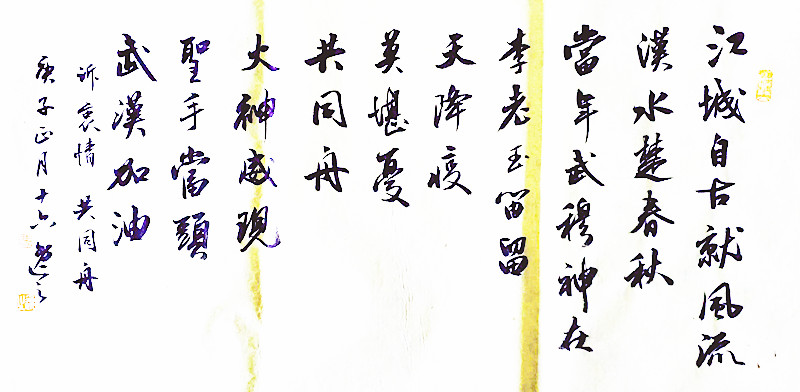 江城自古就風流
漢水楚春秋
當年武穆神在
李老玉笛留
天降疫
莫堪憂
共同舟
火神威現
聖手當頭
武漢加油
訴衷情 共同舟
庚子正月十六